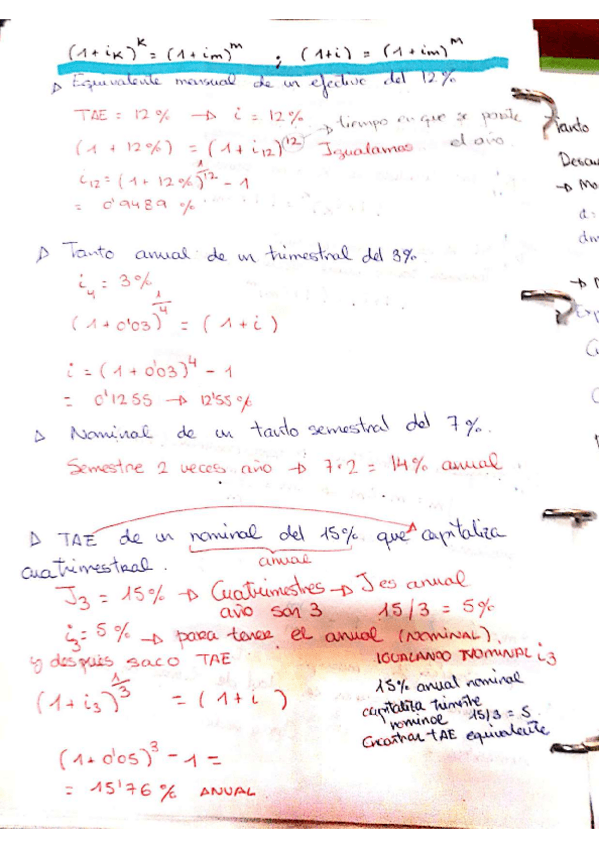 (1+iₖ)ᵏ = (1+iₘ)ᵐ ; (1+i) = (1+iₘ)ᵐ
▷ Equivalente mensual de un efectivo del 12%
TAE = 12% → i = 12%
→ tiempo en que se parte el año
(1 + 12%) = (1+i₁₂)⁽¹²⁾ Igualamos
i₁₂ = (1+12%)^1/12 - 1
= 0'9489 %
▷ Tanto anual de un trimestral del 3%
i₄ = 3%
(1+0'03)^1/4 = (1+i)
i = (1+0'03)⁴ - 1
= 0'1255 → 12'55%
▷ Nominal de un tanto semestral del 7%.
Semestre 2 veces año → 7·2 = 14% anual
▷ TAE de un nominal del 15% que capitaliza
anual
cuatrimestral.
J₃ = 15% → Cuatrimestres → J es anual
año son 3 15/3 = 5%
i₃ = 5% → para tener el anual (NOMINAL).
y después saco TAE
IGUALANDO NOMINAL i₃
(1+i₃)^1/3 = (1+i)
15% anual nominal
capitaliza trimestre
nominal 15/3 = 5
Encontrar TAE equivalente
(1+0'05)³ - 1 =
= 15'76% ANUAL
Tanto
→ Mo
d=
dm